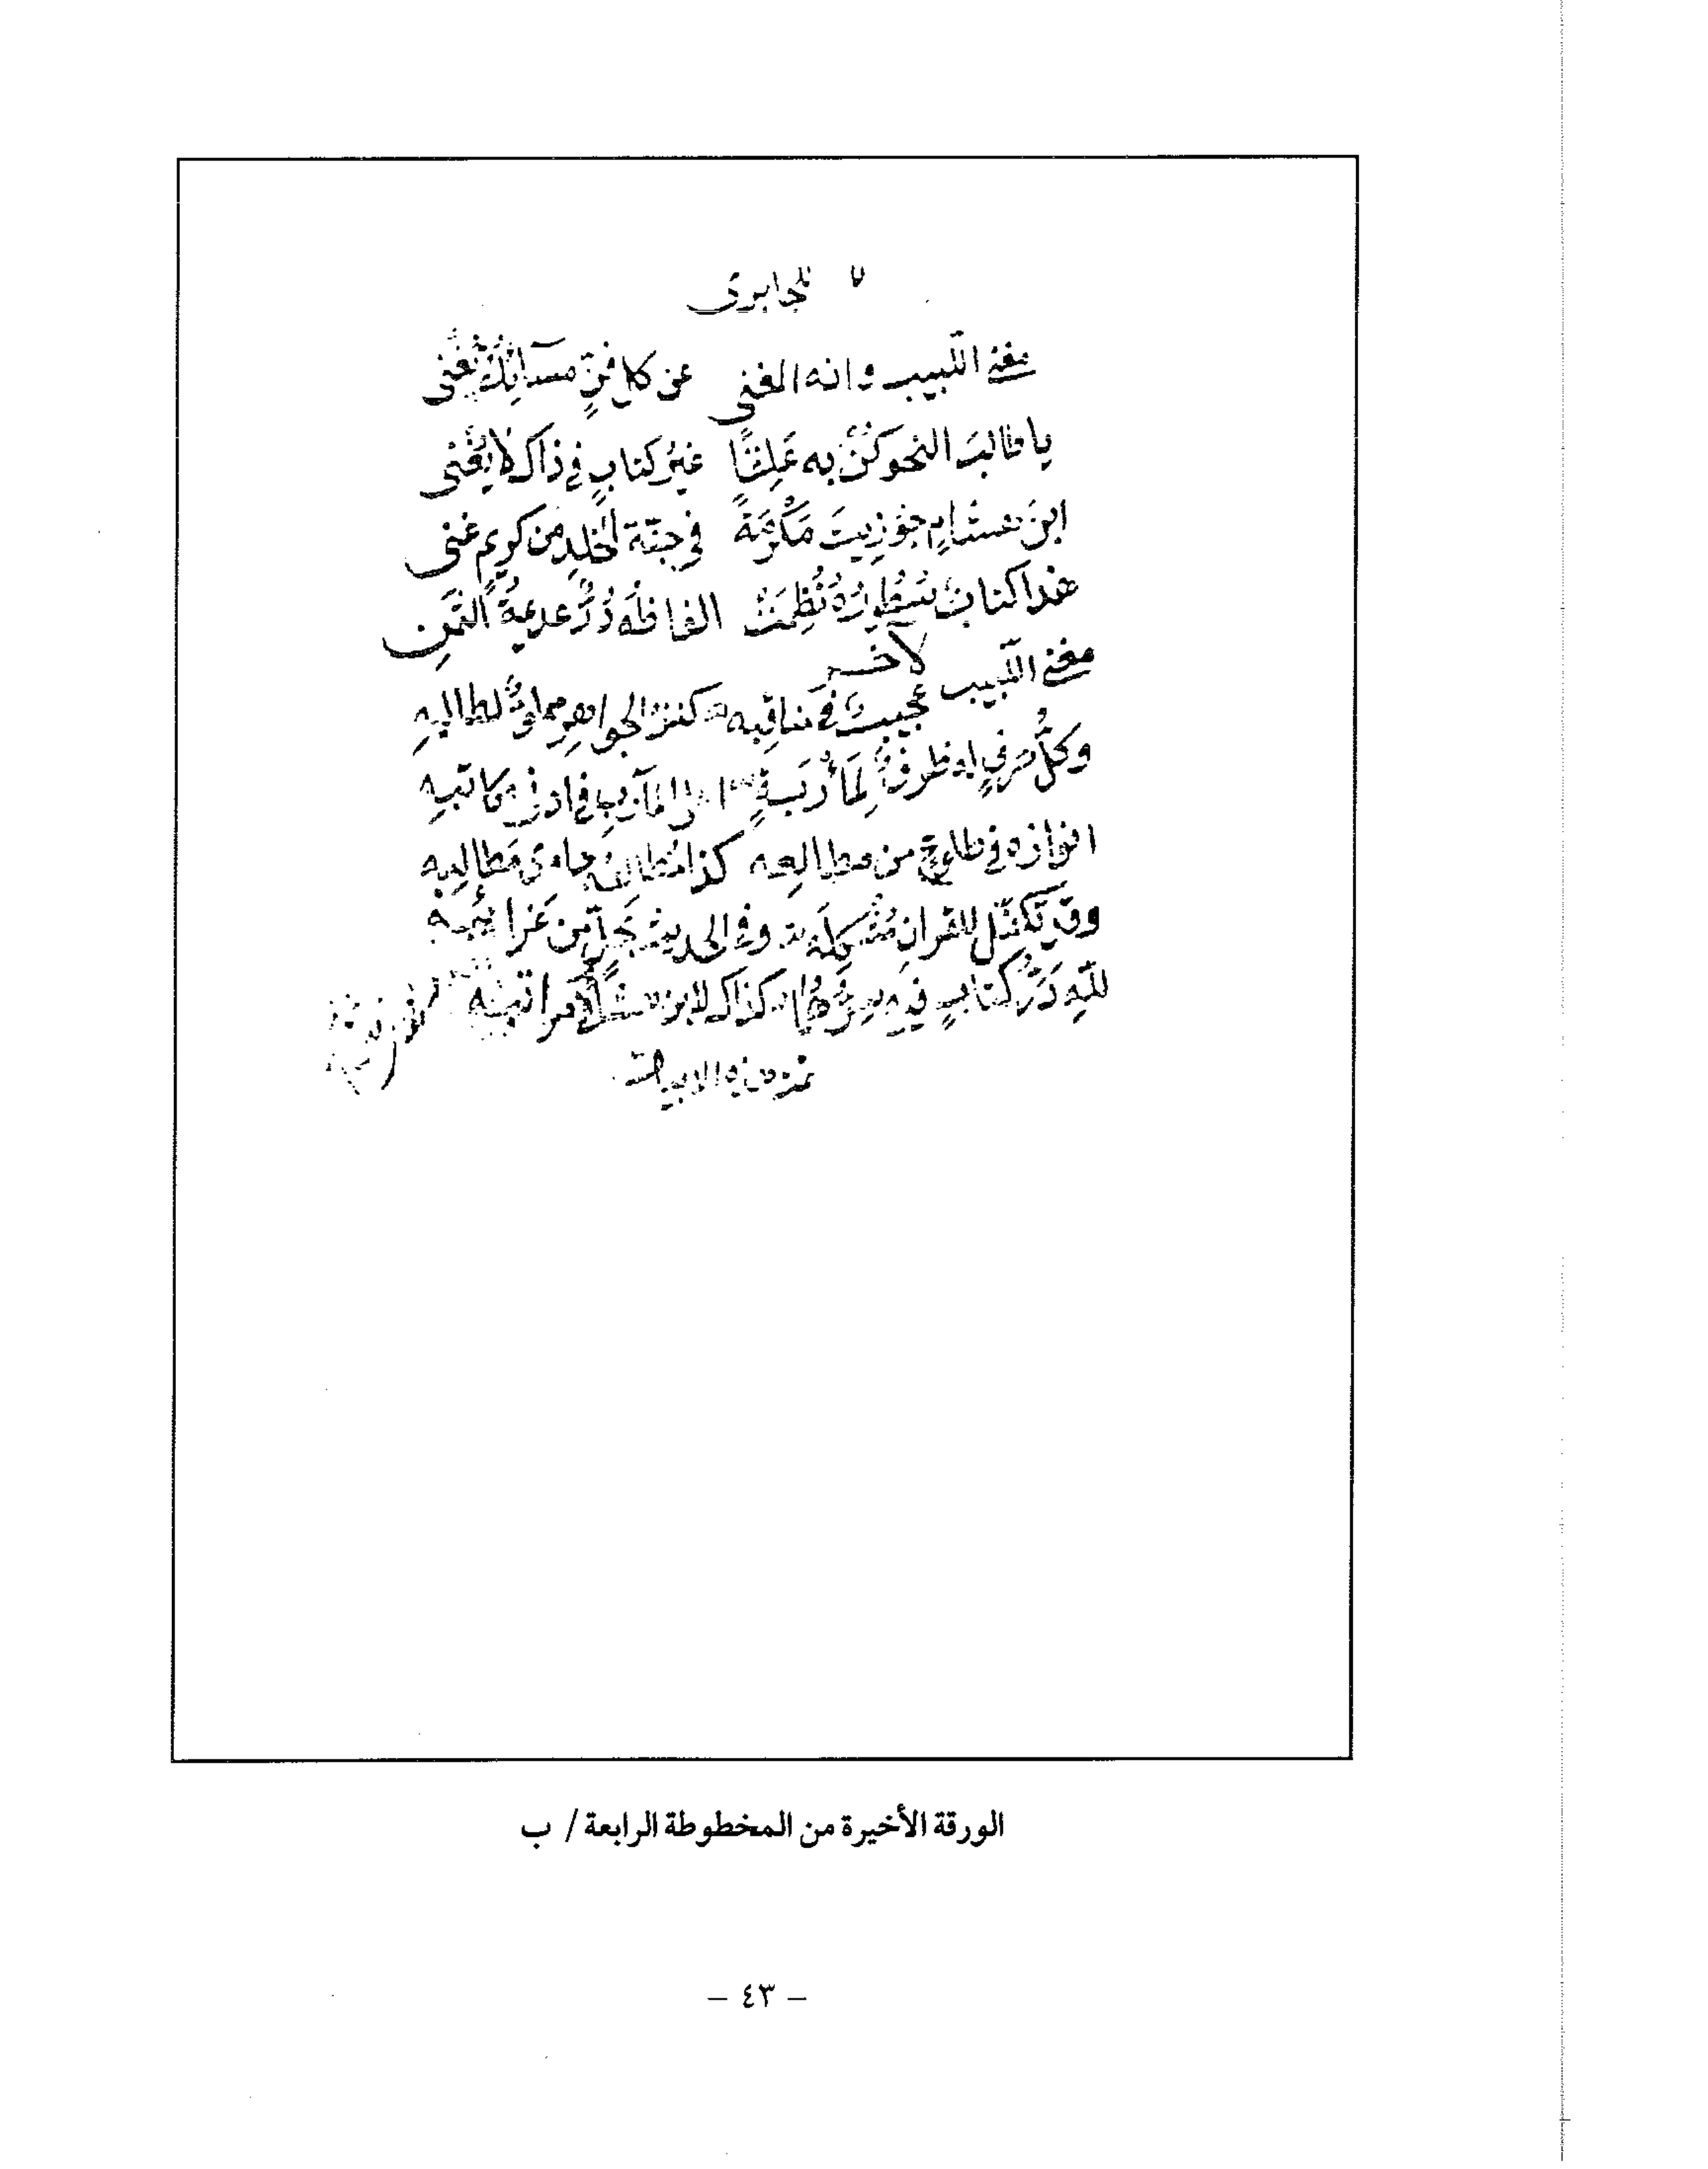 للجابري
مغني اللبيب وانه المغني عن كل فنٍّ مسائلٌ تُغْني
يا طالبَ النحو كُنْ به عَلِقًا غيرُ كتابٍ في ذاك لا يُغْني
ابنَ هشامٍ جُوزِيتَ مَكْرُمَةً في جنّة الخلدِ من كريمٍ غني
هذا كتابٌ سُطُورُهُ نُظِمَتْ الفاظه دُرٌّ عديمةُ الثمَنِ
لآخر
مغني اللبيب عجيبٌ في مناقبه كنز الجواهرِ مملوءٌ لطالبهِ
وكلُّ حرفٍ له ظرفٌ لِمَأْرَبَةٍ المآرب في ادنى مكاتبهِ
انواره في طلوعٍ من مطالعه كذا مطالبه حاوى مَطالبِه
وقد تكفّل للقرانِ مُشْكِلَه وفي الحديث تجلّى من غرائبه
للّهِ دَرُّ كتابٍ فيه سِرُّهُما كذاك لابن هشام مراتبه
تمت هذه الابيات
الورقة الأخيرة من المخطوطة الرابعة / ب
– ٤٣ –